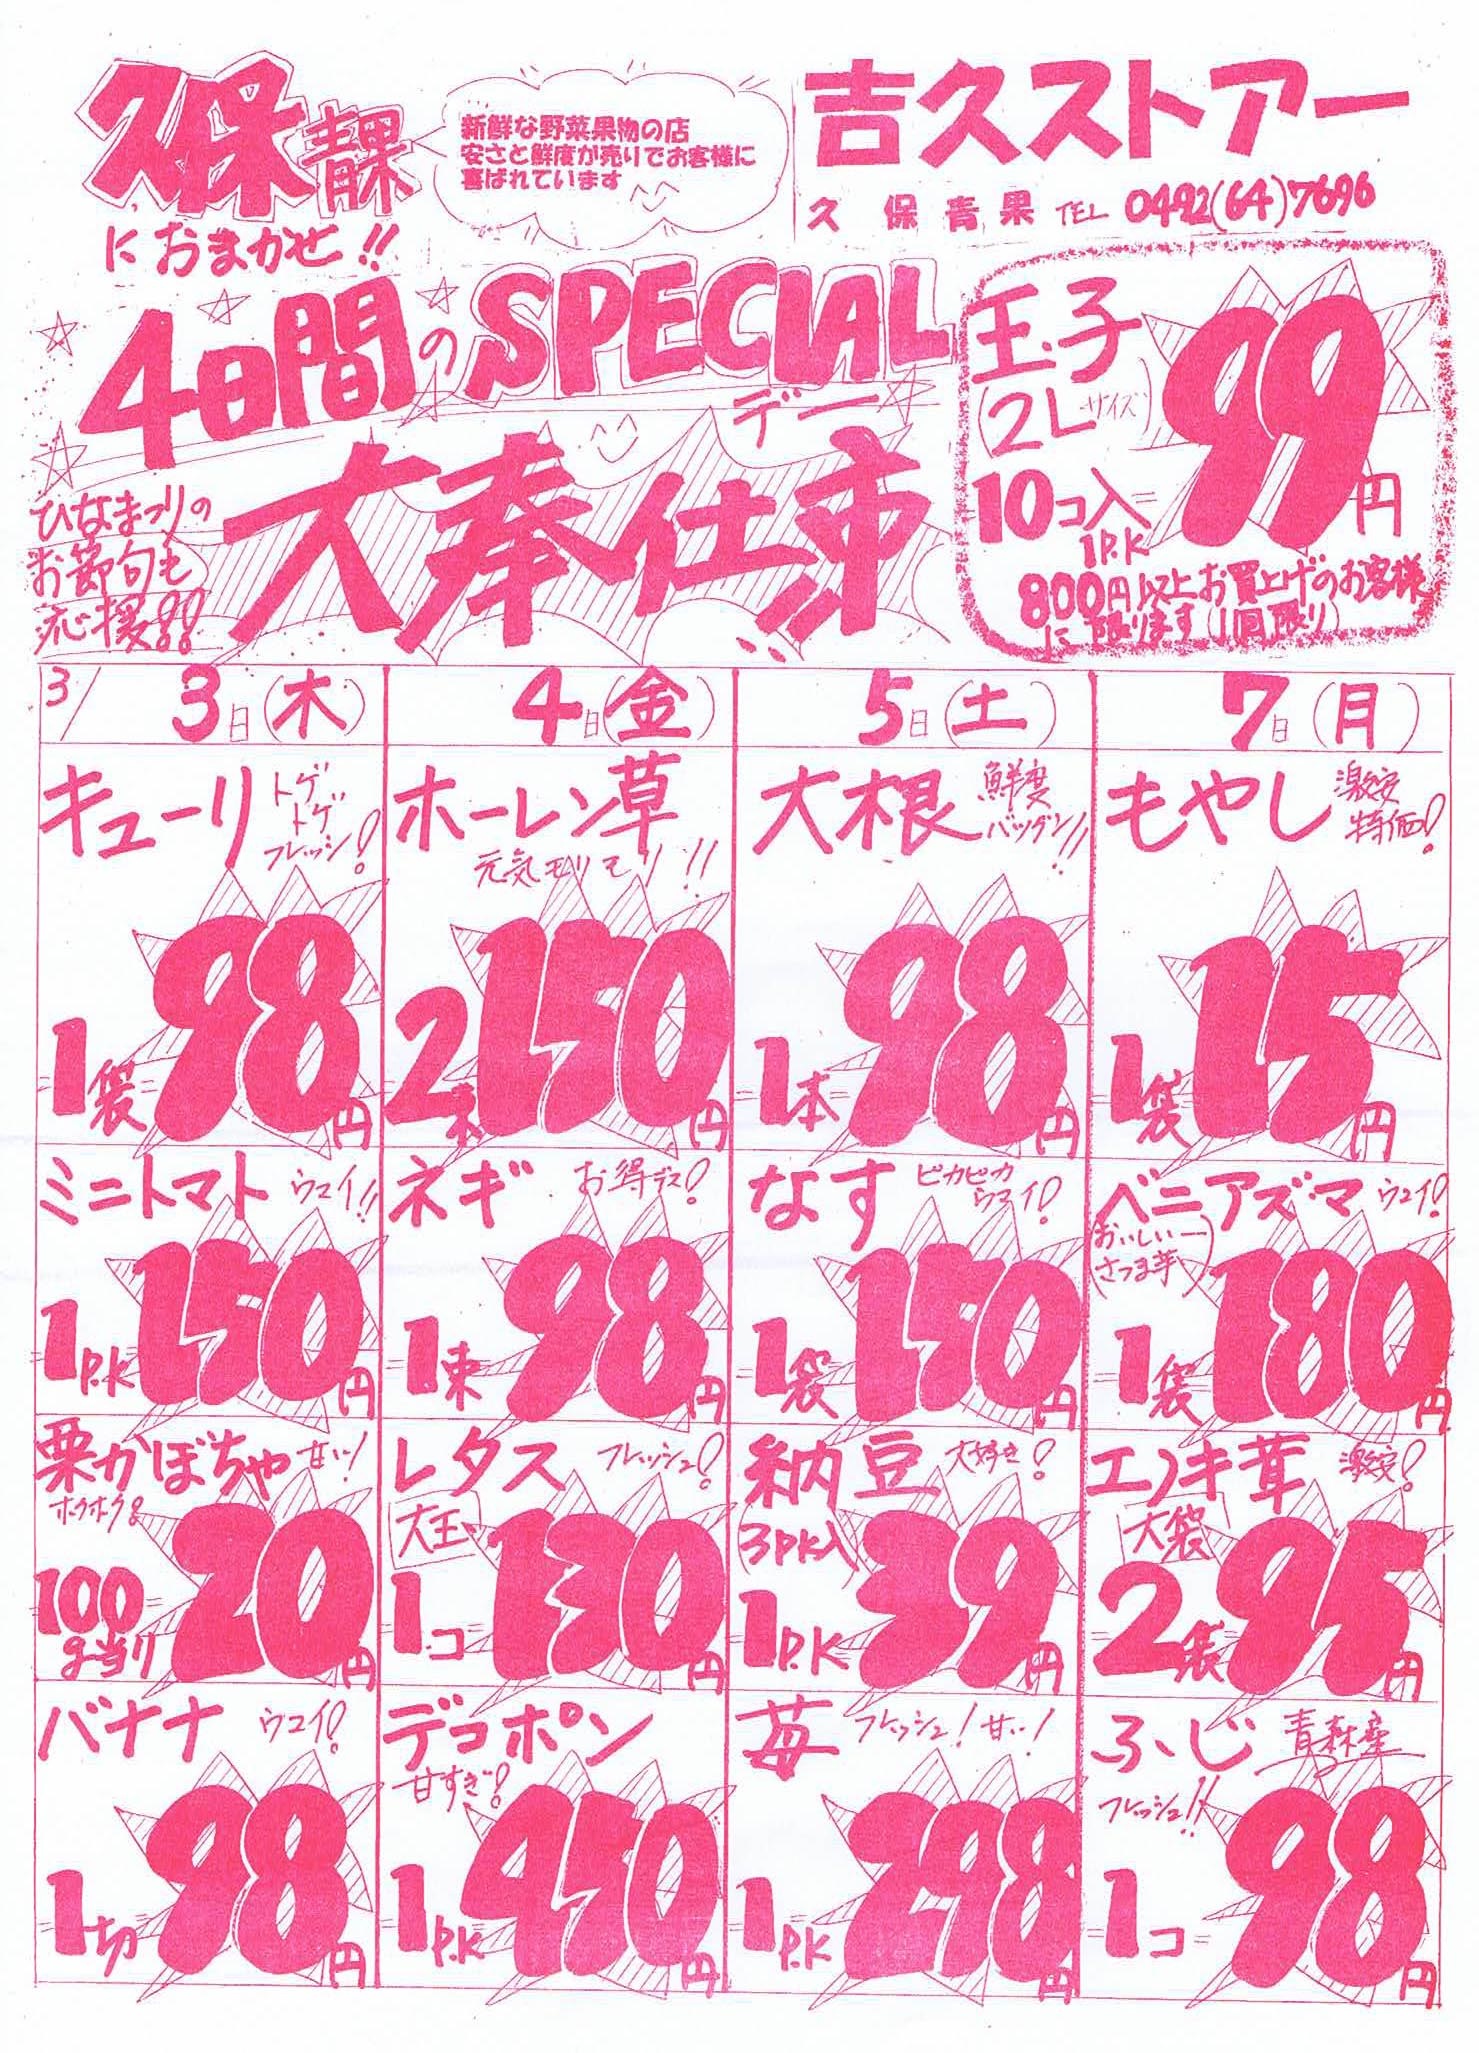 久保青果
におまかせ!!
新鮮な野菜果物の店
安さと鮮度が売りでお客様に
喜ばれています
吉久ストアー
久保青果 TEL 0492(64)7696
4日間のSPECIAL
デー
大奉仕市
ひなまつりの
お節句も
応援!!
玉子
(2Lサイズ)
10コ入
1P.K
99円
800円以上お買上げのお客様
に限ります(1回限り)
3/3日(木)
キューリ
トゲ
トゲ
フレッシュ!
1袋 98円
ミニトマト ウマイ!!
1P.K 150円
栗かぼちゃ 甘い!
ホクホク!
100g当り 20円
バナナ ウマイ!
1切 98円
4日(金)
ホーレン草
元気モリモリ!!
2本 150円
ネギ お得デス!
1束 98円
レタス フレッシュ!
大玉
1コ 130円
デコポン
甘すぎ!
1P.K 450円
5日(土)
大根
鮮度
バツグン!!
1本 98円
なす
ピカピカ
ウマイ!
1袋 150円
納豆 大好き!
(3PK入)
1P.K 39円
苺 フレッシュ!甘い!
1P.K 298円
7日(月)
もやし
激安
特価!
1袋 15円
ベニアズマ ウマイ!
(おいしいー
さつま芋)
1袋 180円
エノキ茸 激安!
大袋
2袋 95円
ふじ 青森産
フレッシュ!!
1コ 98円